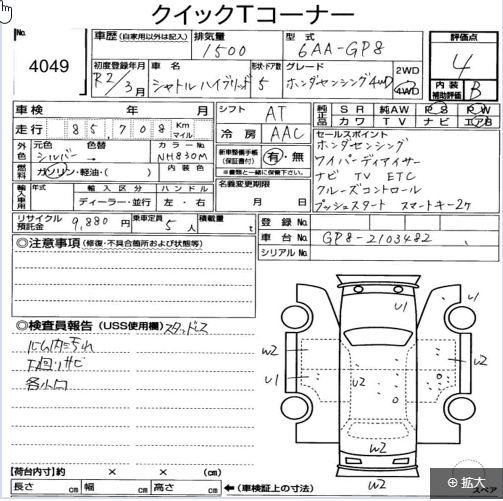 クイックTコーナー
No. 4049
車歴 (自家用以外は記入)
排気量 1500
型式 6AA-GP8
評価点 4
初度登録年月 R2/3月
車名 シャトルハイブリッド
形状・ドア数 5
グレード ホンダセンシング4WD
2WD
4WD
内装補助評価 B
車検 年 月
走行 85,708 Km マイル
シフト AT
冷房 AAC
純正品 SR 純AW PS PW
カワ TV ナビ エアB
外色 元色 シルバー 色替 →
カラーNo. NH830M
燃料 ガソリン・軽油・( )
内装色
新車整備手帳(保証書付) 有・無
※書類と一緒に保管して下さい。
セールスポイント
ホンダセンシング
ワイパーディアイサー
ナビ TV ETC
クルーズコントロール
プッシュスタート スマートキー2ケ
輸入車用 年式 輸入区分 ハンドル
ディーラー・並行 左・右
名義変更期限 月 日
リサイクル預託金 9,880円
乗車定員 5人
積載量 t
登録No.
車台No. GP8-2103482
シリアルNo.
◎注意事項 (修復・不具合箇所および状態等)
◎検査員報告 (USS使用欄) スタッドレス
下回りサビ
各小口
U1
U1
W2
W2
U1
U2
U2
W2
W2
【荷台内寸】約 × ×
長さ cm 幅 cm 高さ cm ←(車検証上の寸法)
スペア
拡大